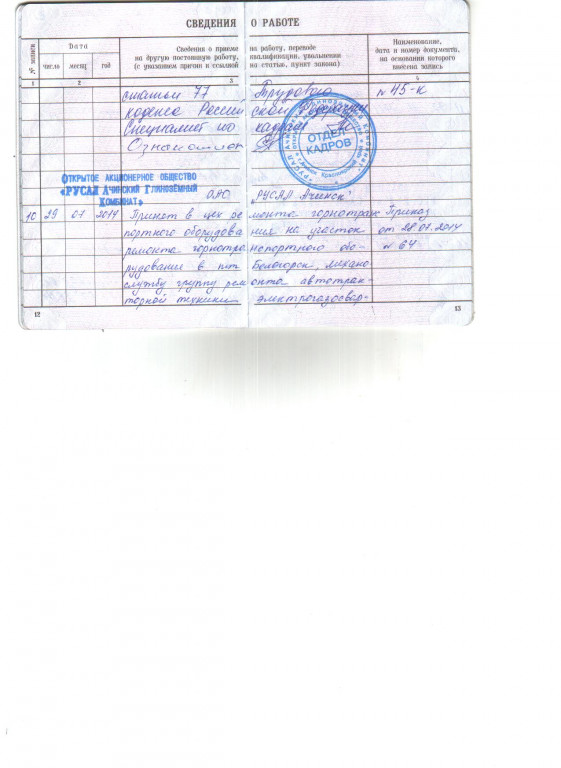 СВЕДЕНИЯ О РАБОТЕ
№ записи
Дата
Сведения о приеме на работу, переводе
на другую постоянную работу, квалификации, увольнении
(с указанием причин и ссылкой на статью, пункт закона)
Наименование,
дата и номер документа,
на основании которого
внесена запись
число месяц год
1 2 3 4
статьи 77 Трудового № 45-к
кодекса Российской Федерации
Специалист по кадрам
Ознакомлен
ОТДЕЛ
КАДРОВ
ОТКРЫТОЕ АКЦИОНЕРНОЕ ОБЩЕСТВО
«РУСАЛ АЧИНСКИЙ ГЛИНОЗЁМНЫЙ
КОМБИНАТ»
ОАО "РУСАЛ Ачинск"
10 29 07 2014 Принят в цех ремонта горнотранс Приказ
портного оборудования на участок от 28.07.2014
ремонта горнотранспортного обо- № 64
рудования в пгт Белогорск, механо
службу группу ремонта автотрак-
торной техники электрогазосвар-
12
13